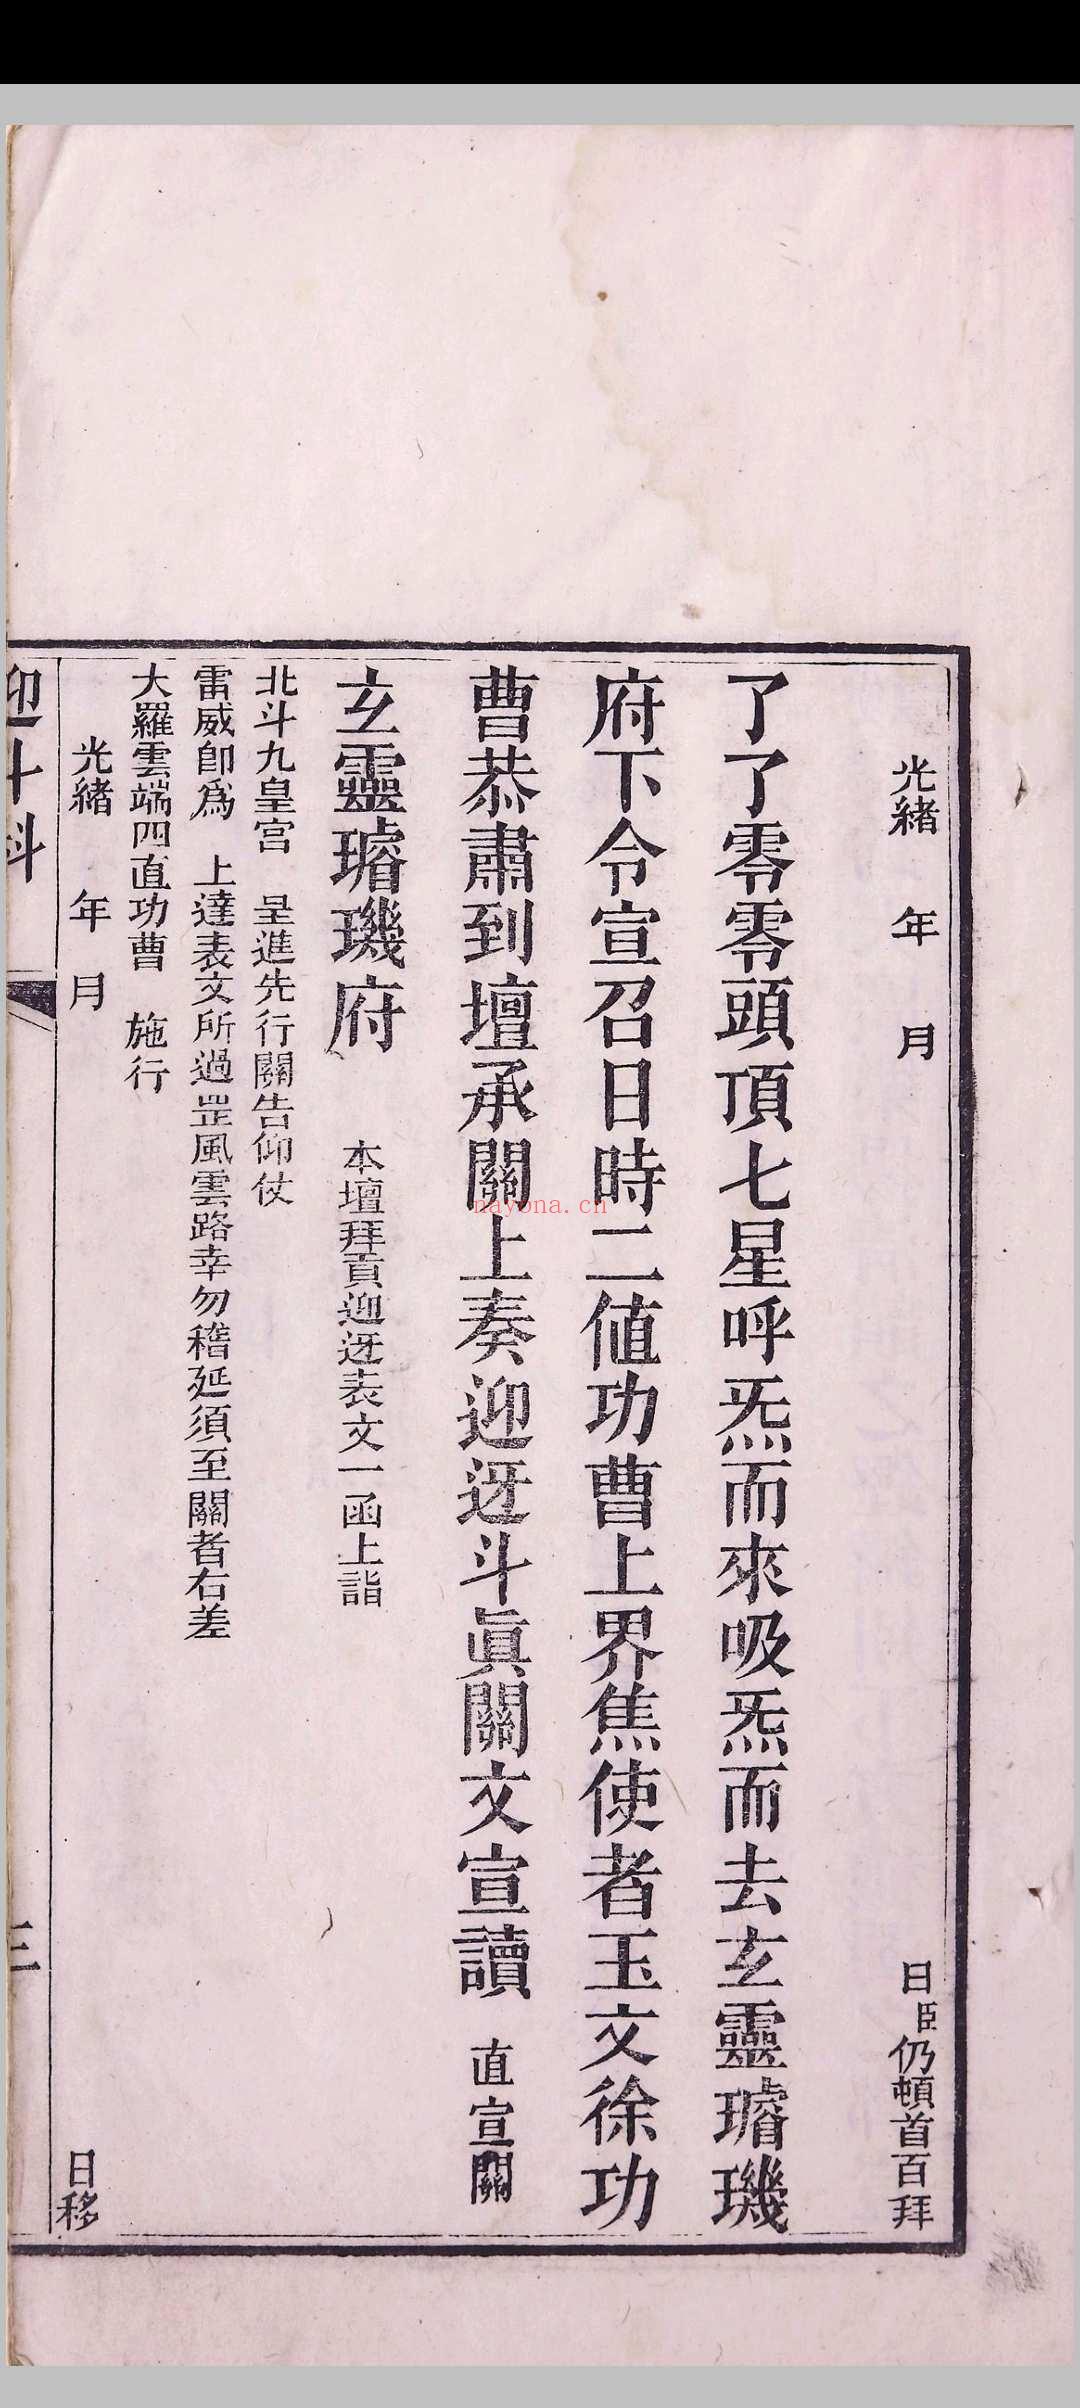 光緒 年 月 日臣仍頓首百拜
了了零零頭頂七星呼炁而來吸炁而去玄靈璿璣
府下令宣召日時二值功曹上界焦使者玉文徐功
曹恭肅到壇承關上奏迎迓斗眞關文宣讀 直宣關
玄靈璿璣府 本壇拜貢迎迓表文一函上詣
北斗九皇宮 呈進先行關告仰仗
雷威卽爲 上達表文所過罡風雲路幸勿稽延須至關者右差
大羅雲端四直功曹 施行
光緒 年 月 日移
迎斗科 三
nayona.cn